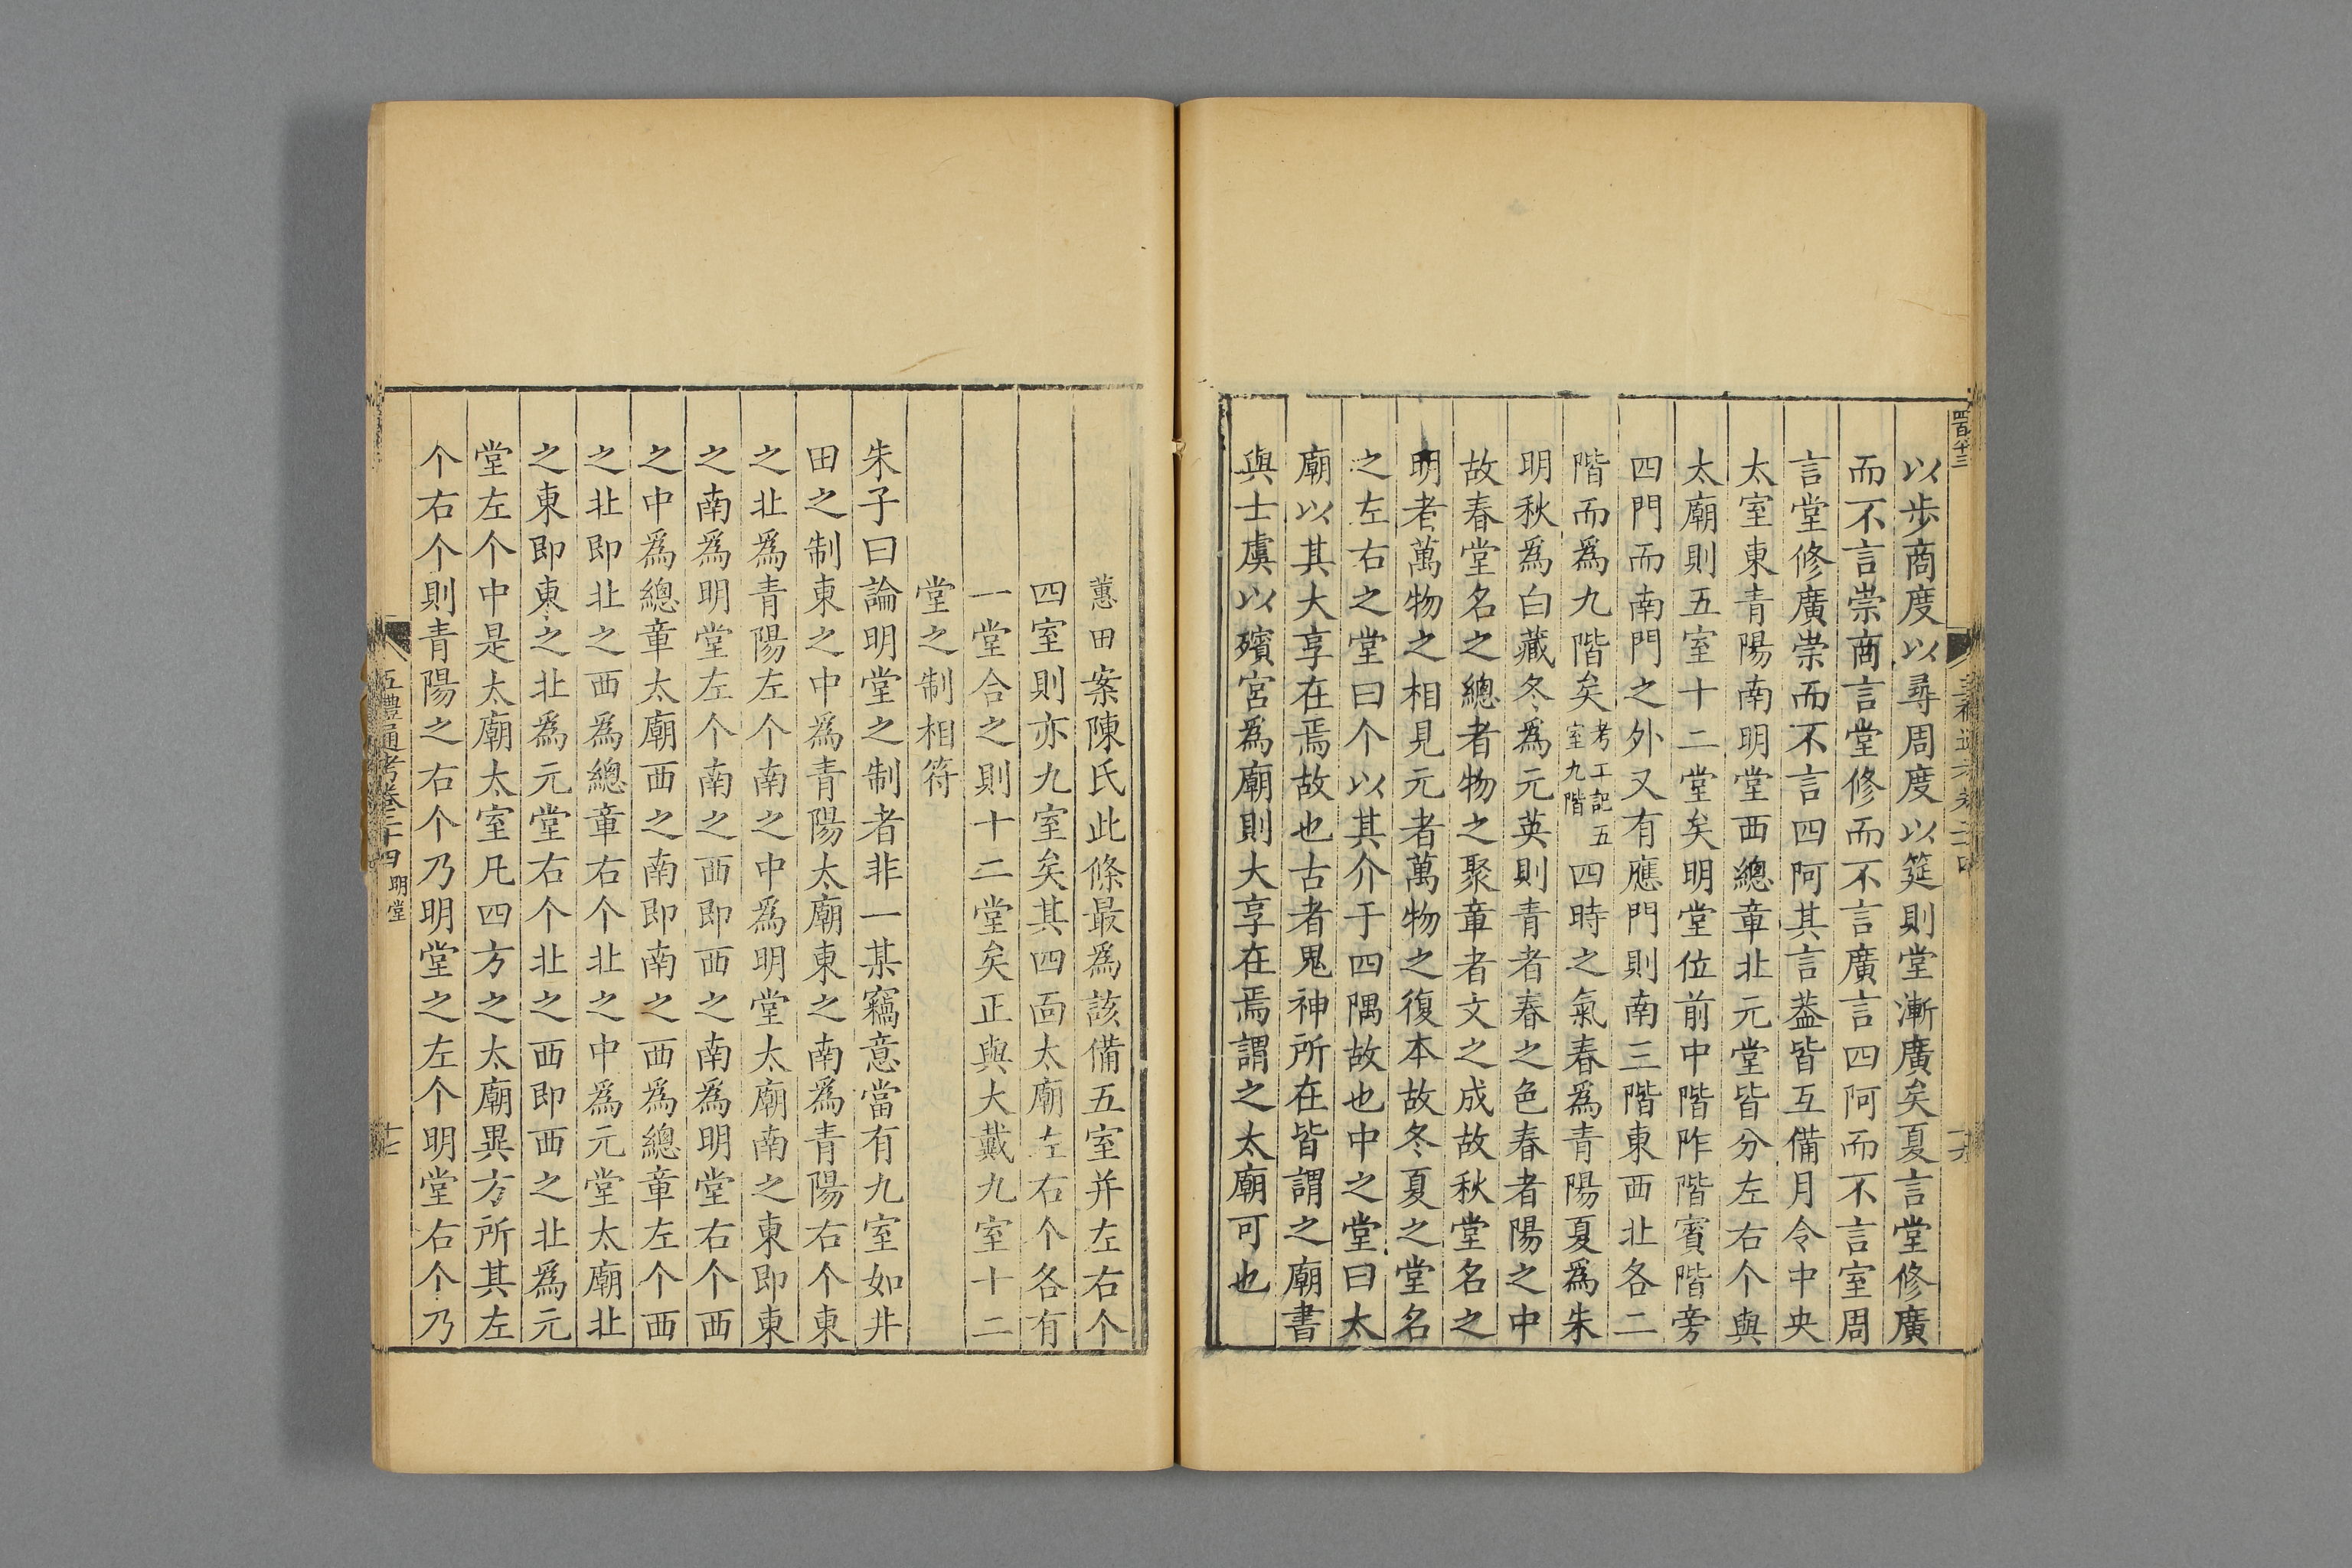 以步商度以尋周度以筵則堂漸廣矣夏言堂修廣
而不言崇商言堂修而不言廣言四阿而不言室周
言堂修廣崇而不言四阿其言葢皆互備月令中央
太室東青陽南明堂西總章北元堂皆分左右个與
太廟則五室十二堂矣明堂位前中階阼階賓階旁
四門而南門之外又有應門則南三階東西北各二
階而爲九階矣考工記五室九階四時之氣春爲青陽夏爲朱
明秋爲白藏冬爲元英則青者春之色春者陽之中
故春堂名之總者物之聚章者文之成故秋堂名之
明者萬物之相見元者萬物之復本故冬夏之堂名
之左右之堂曰个以其介于四隅故也中之堂曰太
廟以其大享在焉故也古者鬼神所在皆謂之廟書
與士虞以殯宮爲廟則大享在焉謂之太廟可也
蕙田案陳氏此條最爲該備五室并左右个
四室則亦九室矣其四面太廟左右个各有
一堂合之則十二堂矣正與大戴九室十二
堂之制相符
朱子曰論明堂之制者非一某竊意當有九室如井
田之制東之中爲青陽太廟東之南爲青陽右个東
之北爲青陽左个南之中爲明堂太廟南之東即東
之南爲明堂左个南之西即西之南爲明堂右个西
之中爲總章太廟西之南即南之西爲總章左个西
之北即北之西爲總章右个北之中爲元堂太廟北
之東即東之北爲元堂右个北之西即西之北爲元
堂左个中是太廟太室凡四方之太廟異方所其左
个右个則青陽之右个乃明堂之左个明堂右个乃
五禮通考卷二十四 明堂 十七